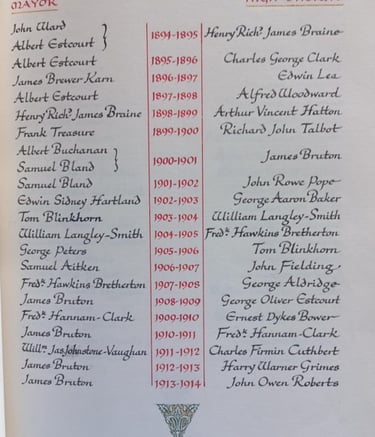 MAYOR
John Ward
Albert Estcourt 1894-1895 Henry Richd. James Braine
Albert Estcourt 1895-1896 Charles George Clark
James Brewer Karn 1896-1897 Edwin Lea
Albert Estcourt 1897-1898 Alfred Woodward
Henry Richd. James Braine 1898-1899 Arthur Vincent Hatton
Frank Treasure 1899-1900 Richard John Talbot
Albert Buchanan
Samuel Bland 1900-1901 James Bruton
Samuel Bland 1901-1902 John Rowe Pope
Edwin Sidney Hartland 1902-1903 George Aaron Baker
Tom Blinkhorn 1903-1904 William Langley-Smith
William Langley-Smith 1904-1905 Fredk. Hawkins Bretherton
George Peters 1905-1906 Tom Blinkhorn
Samuel Aitken 1906-1907 John Fielding
Fredk. Hawkins Bretherton 1907-1908 George Aldridge
James Bruton 1908-1909 George Oliver Estcourt
Fredk. Hannam-Clark 1909-1910 Ernest Dykes Bower
James Bruton 1910-1911 Fredk. Hannam-Clark
Willm. Jas Johnstone-Vaughan 1911-1912 Charles Firmin Cuthbert
James Bruton 1912-1913 Harry Warner Grimes
James Bruton 1913-1914 John Owen Roberts